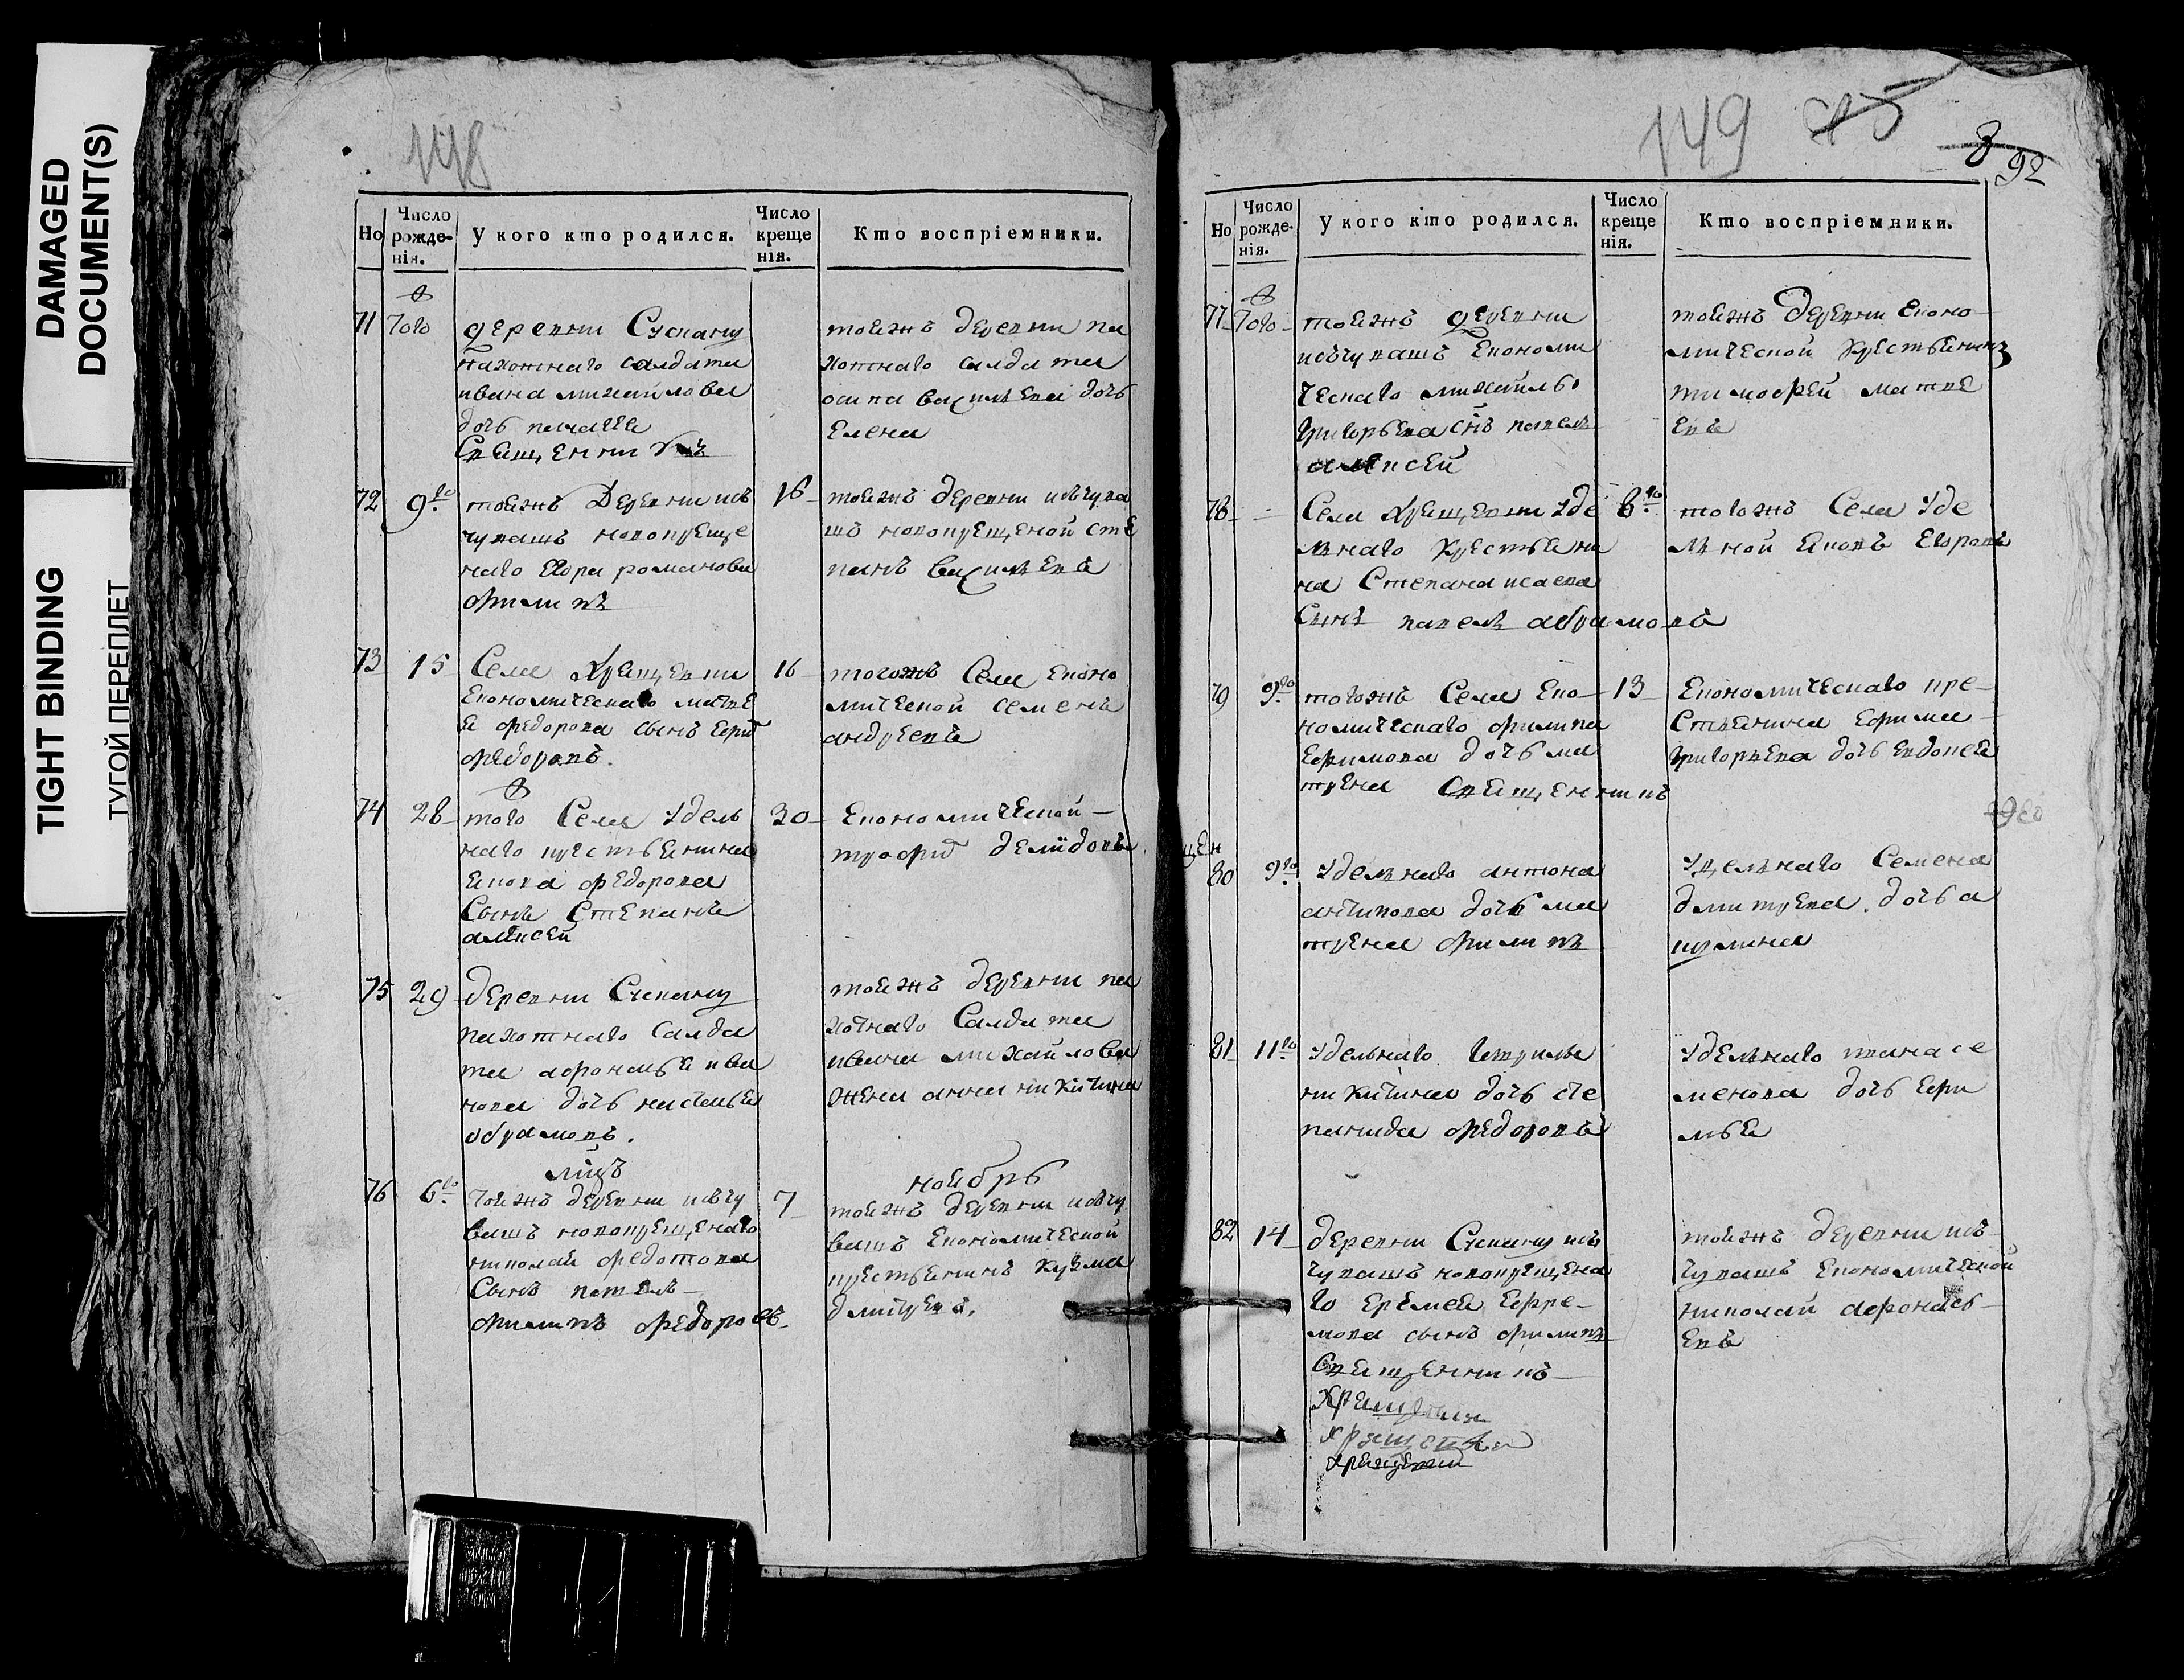 DAMAGED
DOCUMENT(S)
TIGHT BINDING
ТУГОЙ ПЕРЕПЛЕТ
148
Но
Число рожденія.
У кого кто родился.
Число крещенія.
Кто воспріемники.
71 Того
деревни
пахотнаго салдата
ивана михайлова
дочь пелагея
тоежъ деревни па
хотнаго салдата
осипа василева дочь
Елена
72 9го
тоежъ деревни исъ
чувашъ новокреще
наго Егора романова
филипъ
16
тоежъ деревни исъчува
шъ новокрещеной сте
панъ василевъ
73 15
Села
Економическаго матве
я федорова сынъ
федоровъ.
16
тогожъ Села Еконо
мической семенъ
андреевъ
74 28
того Села Удель
наго крестьянина
якова федорова
Сынъ Степанъ
алексей
30
Економической
демидовъ
75 29
деревни
пахотнаго Салда
та афонасья ива
нова дочь настасья
абрамовъ.
тоежъ деревни па
хотнаго Салдата
ивана михайлова
жена анна никитина
мцъ
ноябрь
76 6го
тоежъ деревни исъчу
вашъ новокрещенаго
николая федотова
Сынъ павелъ
филипъ федоровъ
7
тоежъ деревни исъчу
вашъ Економической
крестьянинъ кузма
дмитревъ.
149
92
Но
Число рожденія.
У кого кто родился.
Число крещенія.
Кто воспріемники.
77 Того
тоежъ деревни
исъчувашъ Економи
ческаго михайлы
григорьева снъ павелъ
алексей
тоежъ деревни Еконо
мической крестьянинъ
тимофей матве
евъ
78
Села Хрящевки Уде
льнаго крестьяни
на Степана исаева
Сынъ павелъ абрамовъ
тогожъ Села Уде
льной яковъ Егоровъ
79 9го
тогожъ Села Еко
номическаго филипа
Ефимова дочь ма
трена Священникъ
13
Економическаго кре
стьянина Ефима
григорьева дочь Евдокея
80 9го
Удельнаго антона
антипова дочь ма
трена филипъ
Удельнаго Семена
дмитрева дочь а
кулина
81 11го
Удельнаго гаврилы
никитина дочь сте
панида федоровъ
Удельнаго ивана се
менова дочь Ефи
мья
82 14
деревни исъ
чувашъ новокрещена
го Еремея Ефре
мова сынъ филипъ
Священникъ
тоежъ деревни исъ
чувашъ Економической
николай афонась
евъ